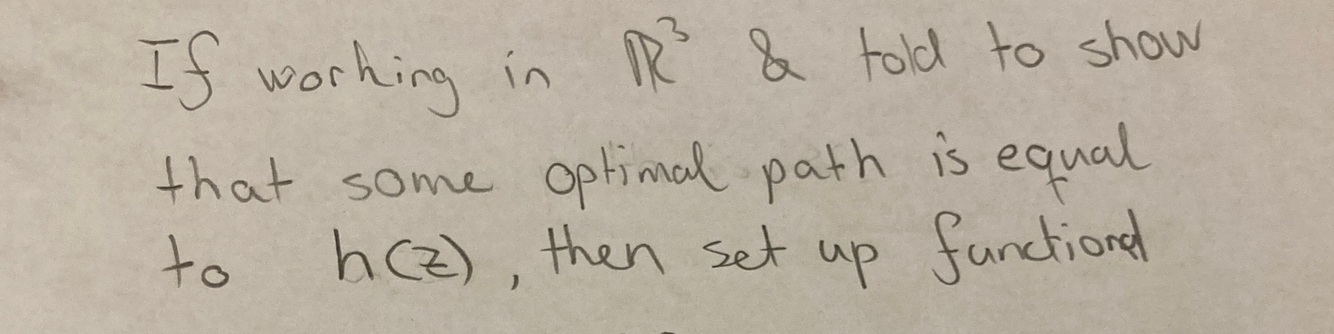 If working in ℝ³ & told to show
that some optimal path is equal
to h(z), then set up functional